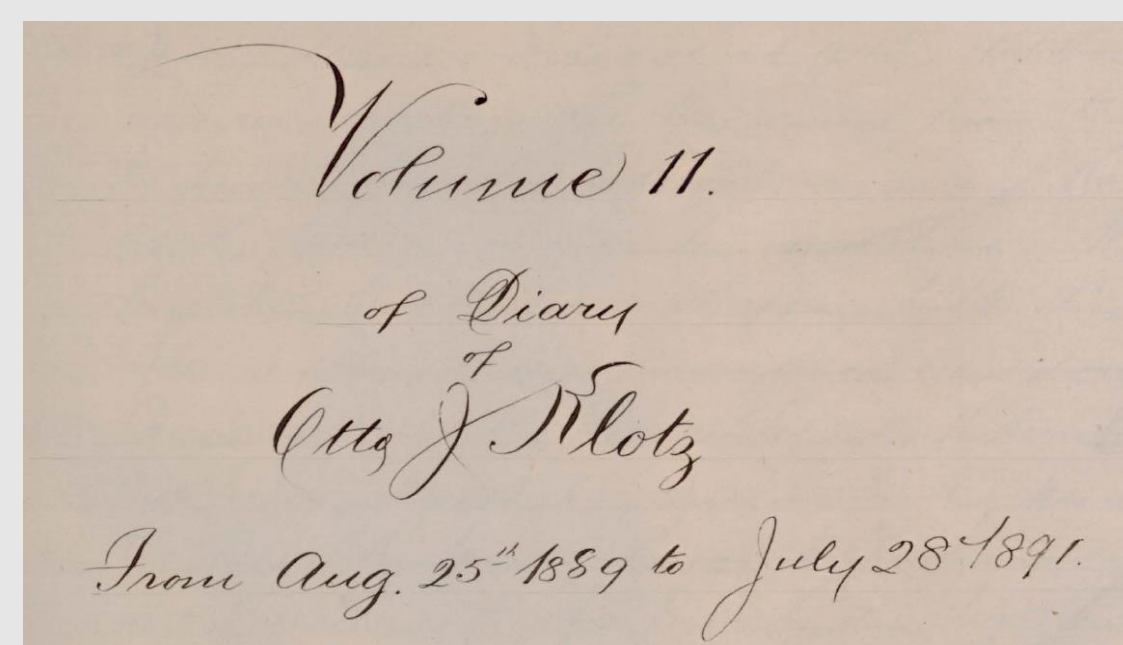 Volume 11.
of Diary
of
Otto J Klotz
From Aug. 25th 1889 to July 28th 1891.